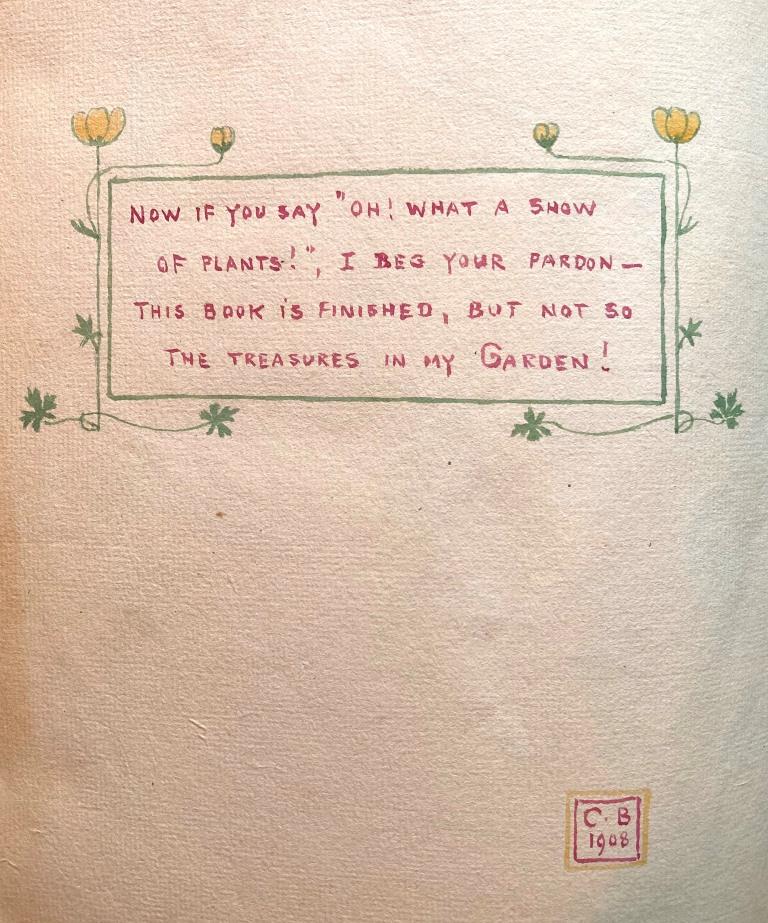 NOW IF YOU SAY "OH! WHAT A SHOW
OF PLANTS!", I BEG YOUR PARDON —
THIS BOOK IS FINISHED, BUT NOT SO
THE TREASURES IN MY GARDEN!
C. B
1908